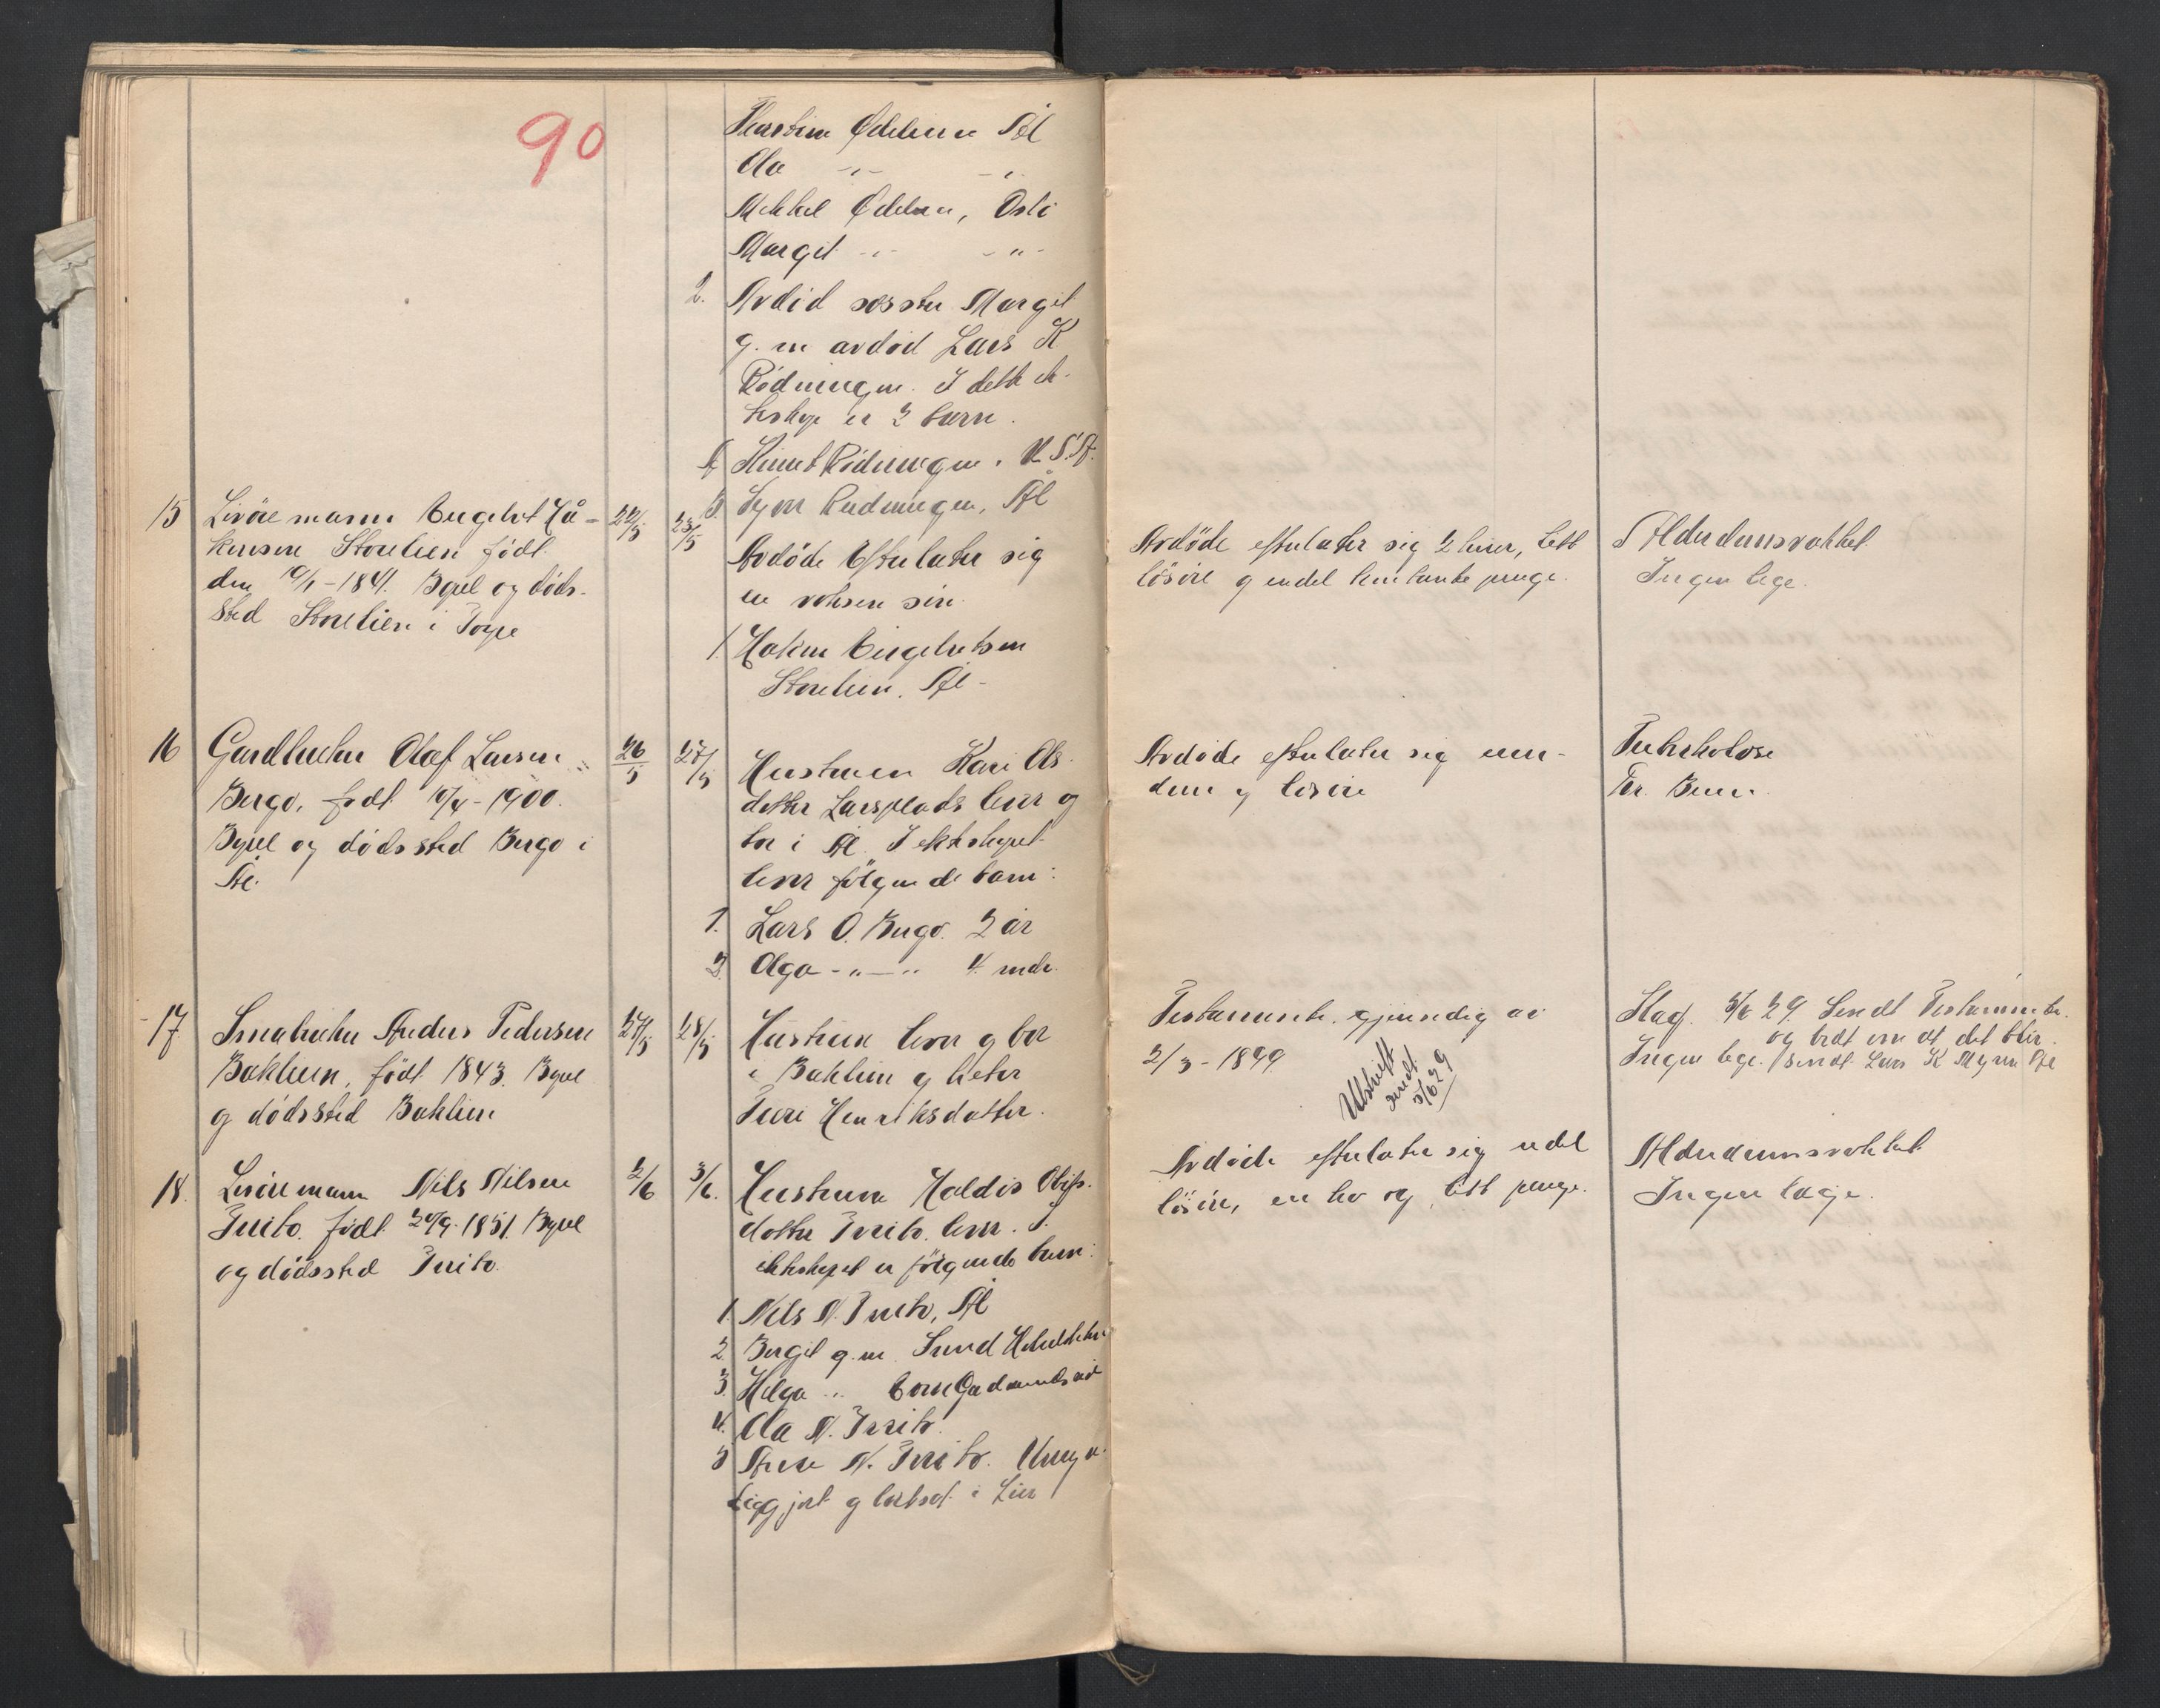 90
Ødelien Ål
Ola -"- -"-
Mekkel Ødelien, Oslo
Margit -"- -"-
2. Avdød søster Margit
g. m avdød Lars K
Rødningen. I dette ek-
teskap er 2 barn.
A Knut Rødningen, U.S.A.
B. Rudningen, Ål
15 Livøremann Engebret Hå-
kensen Storelien født
den 10/1-1841. Bopel og døds-
sted Storelien i Torpe
22/5 23/5
Avdøde efterlater sig
en voksen søn.
1. Hoken Engebretsen
Storelien. Ål-
Avdøde efterlater sig 2 kuer, litt
løsøre og endel kontante penge.
Alderdomsvakhet
Ingen lege.
16 Gardbruker Olaf Larsen
Bergo, født 10/4-1900.
Bopel og dødssted Bergo i
Ål.
26/5 27/5
Hustruen Kari Ols-
datter Larsplads lever og
bor i Ål. I ekteskapet
lever følgende barn:
1. Lars O. Bergo. 2 år
2. Olga -"- -"- 4 mdr.
Avdøde efterlater sig eien-
dom og løsøre
Tuberkolose
Dr. Benn.
17. Smabruker Anders Pedersen
Baklien, født 1843. Bopel
og dødssted Baklien
27/5 28/5
Hustruen lever og bor
i Baklien og heter
Ture Henriksdatter.
Testamente gjensidig av
2/3-1899
Utskrift
sendt
5/6 29
5/6 29. Sendt Testamente
og bedt om at det blir
Ingen lege. sendt Lars K Myren Ål
18. Livøremann Nils Nilsen
Trito. født 20/9-1851. Bopel
og dødssted Trito.
2/6 3/6.
Hustruen Haldis Olifs-
datter Trito. lever. I
ekteskapet er følgende barn:
1. Nils N. Trito, Ål
2. Bergit g. m.
3. Helga "
4. Ola N. Trito.
5 N. Trito. Umyn-
diggjort og bortsat i Lier
Avdøde efterlater sig endel
løsøre, en ko og litt penge.
Alderdomsvakhet
Ingen læge.